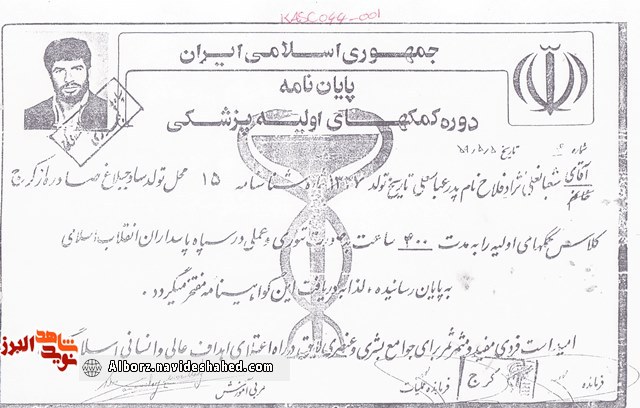 KASC044-001
جمهوری اسلامی ایران
پایان نامه
دوره کمکهای اولیه پزشکی
شماره تاریخ ۵/۵/۵۹
آقای شعبانعلی نژاد فلاح نام پدر عباسعلی تاریخ تولد ۱۳۳۷ شماره شناسنامه ۱۵ محل تولد ساوجبلاغ صادره از کرج
خانم
کلاس کمکهای اولیه را به مدت ۴۰۰ ساعت بصورت تئوری و عملی در سپاه پاسداران انقلاب اسلامی
به پایان رسانیده ، لذا به دریافت این گواهینامه مفتخر میگردد .
امید است فردی مفید و مثمر ثمر برای جوامع بشری و عنصری لایق در راه اعتلای اهداف عالی و انسانی اسلام
فرمانده
کرج
فرمانده عملیات
مربی آموزش
نوید شاهد البرز
Alborz.navideshahed.com